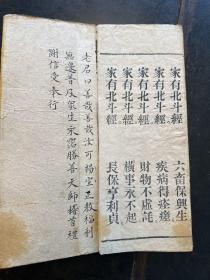 家有北斗經 六畜保興生
家有北斗經 疾病得痊瘥
家有北斗經 財物不虛耗
家有北斗經 橫事永不起
家有北斗經 長保亨利貞
老君曰善哉善哉汝可揚宣正教福利
無邊普及眾生永霑勝善天師稽首禮
謝信受奉行